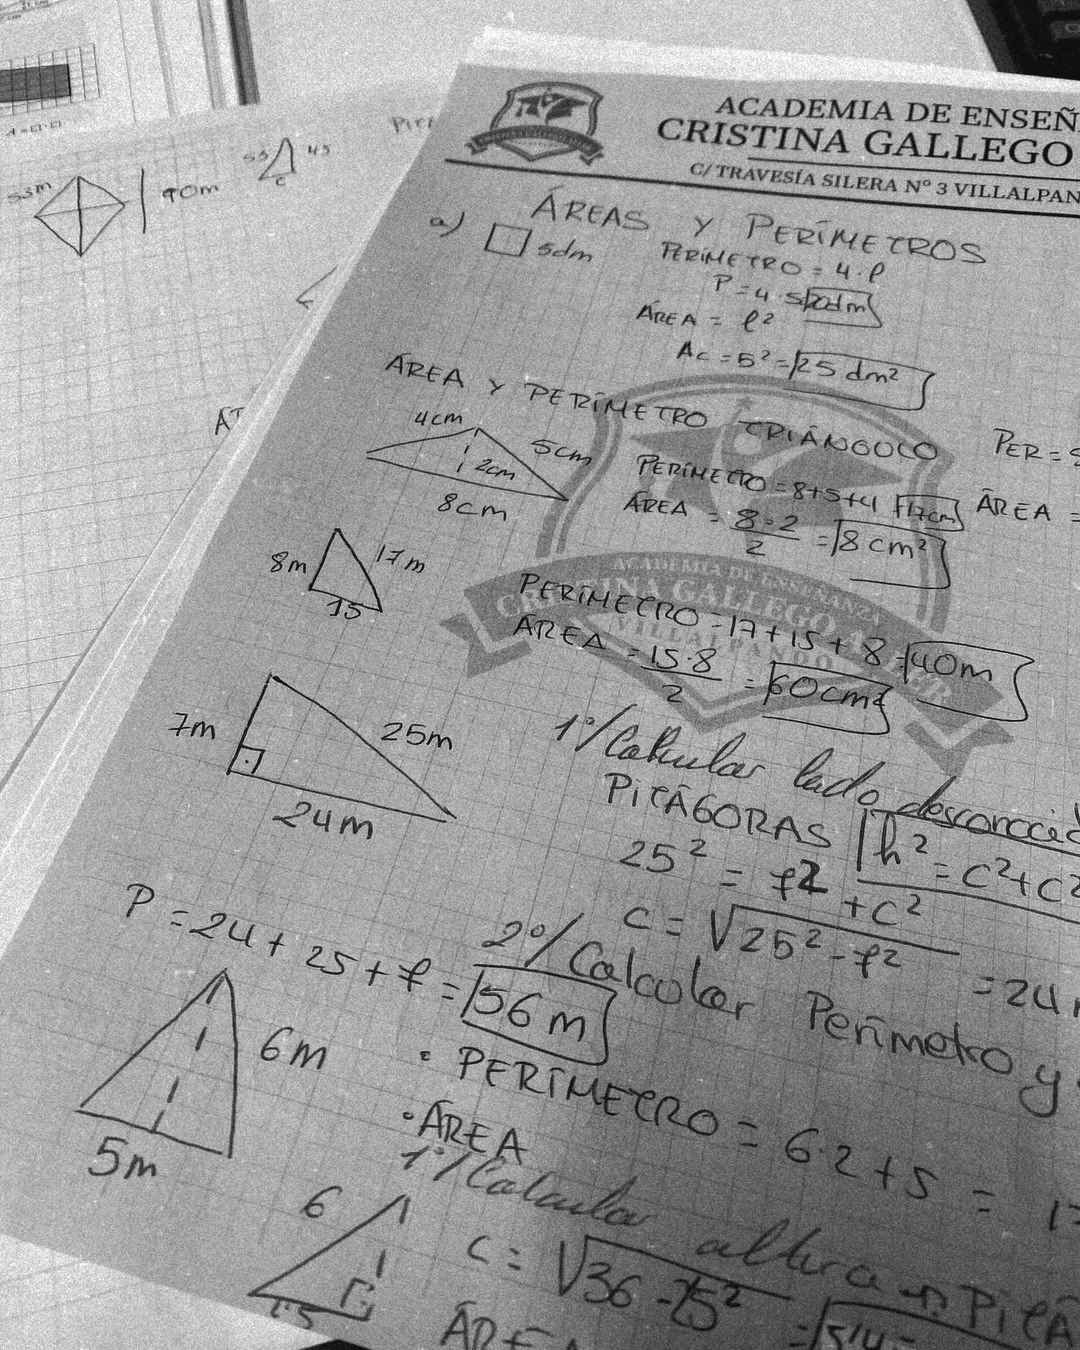 53m
90m
53
45
c
ACADEMIA DE ENSEÑ
CRISTINA GALLEGO
C/ TRAVESÍA SILERA Nº 3 VILLALPAN
ÁREAS Y PERÍMETROS
a)
5dm
PERÍMETRO = 4·l
P = 4·5 20dm
ÁREA = l²
Ac = 5² = 25 dm²
ÁREA Y PERÍMETRO TRIÁNGULO
4cm
5cm
2cm
8cm
PERÍMETRO = 8+5+4 17cm
ÁREA = 8·2/2 = 8 cm²
PER =
ÁREA =
ACADEMIA DE ENSEÑANZA
CRISTINA GALLEGO
VILLALPANDO
8m
17m
15
PERÍMETRO = 17+15+8 = 40m
ÁREA = 15·8/2 = 60cm²
7m
25m
24m
1º/Calcular lado desconocid
PITÁGORAS h² = c²+c²
25² = 7² + c²
c = √25² - 7² = 24
P = 24 + 25 + 7 = 56 m
2º/Calcular Perímetro y
6m
5m
• PERÍMETRO = 6·2+5 = 17
• ÁREA
1º/Calcular altura → PITÁ
6
c = √36 - 2'5² =
ÁREA